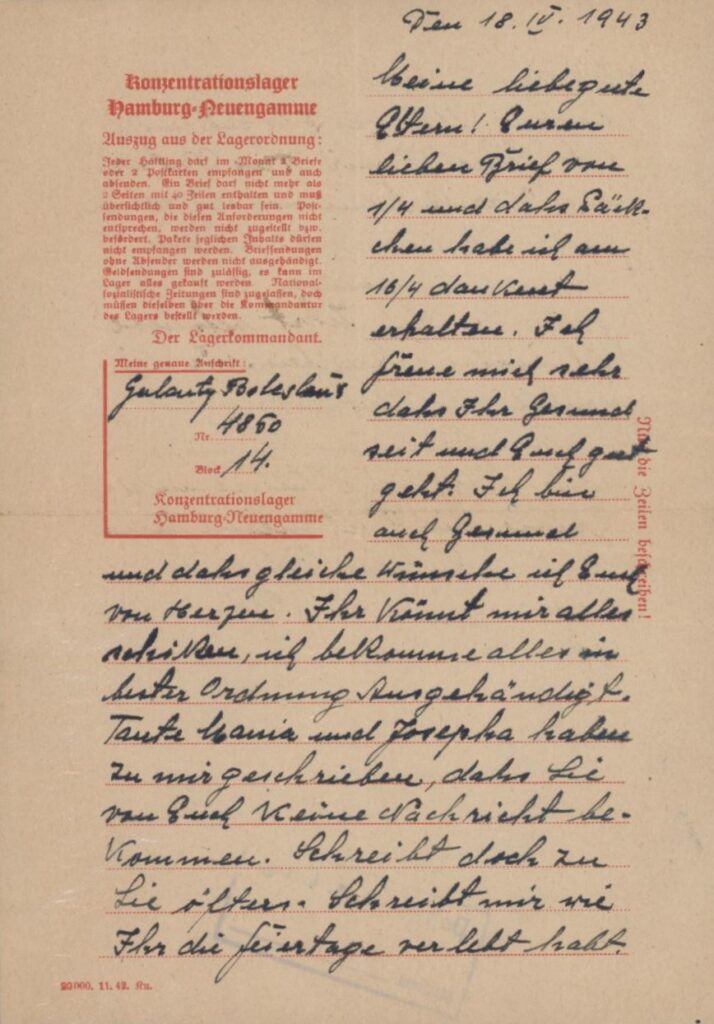 Den 18. IV. 1943
Konzentrationslager
Hamburg-Neuengamme
Auszug aus der Lagerordnung:
Jeder Häftling darf im Monat 2 Briefe
oder 2 Postkarten empfangen und auch
absenden. Ein Brief darf nicht mehr als
2 Seiten mit 40 Zeilen enthalten und muß
übersichtlich und gut lesbar sein. Post-
sendungen, die diesen Anforderungen nicht
entsprechen, werden nicht zugestellt bzw.
befördert. Pakete jeglichen Inhalts dürfen
nicht empfangen werden. Briefsendungen
ohne Absender werden nicht ausgehändigt.
Geldsendungen sind zulässig, es kann im
Lager alles gekauft werden. National-
sozialistische Zeitungen sind zugelassen, doch
müssen dieselben über die Kommandantur
des Lagers bestellt werden.
Der Lagerkommandant.
Meine genaue Anschrift:
Boleslaus
Nr. 4860
Block 14.
Konzentrationslager
Hamburg-Neuengamme
Meine liebegute
Eltern! Euren
lieben Brief von
1/4 und dahs Päck-
chen habe ich am
16/4 dankent
erhalten. Ich
freue mich sehr
dahs Ihr Gesund
seit und Euch gut
geht. Ich bin
auch Gesund
und dahs gleiche wünsche ich Euch
von Herzen. Ihr Könnt mir alles
schiken, ich bekomme alles in
bester Ordnung Ausgehändigt.
Tante Mania und Josepha haben
zu mir geschrieben, dahs Sie
von Euch Keine Nachricht be-
kommen. Schreibt doch zu
Sie öfters. Schreibt mir wie
Ihr die feiertage verlebt habt.
Nur die Zeilen beschreiben!
20000. 11. 42. Ku.